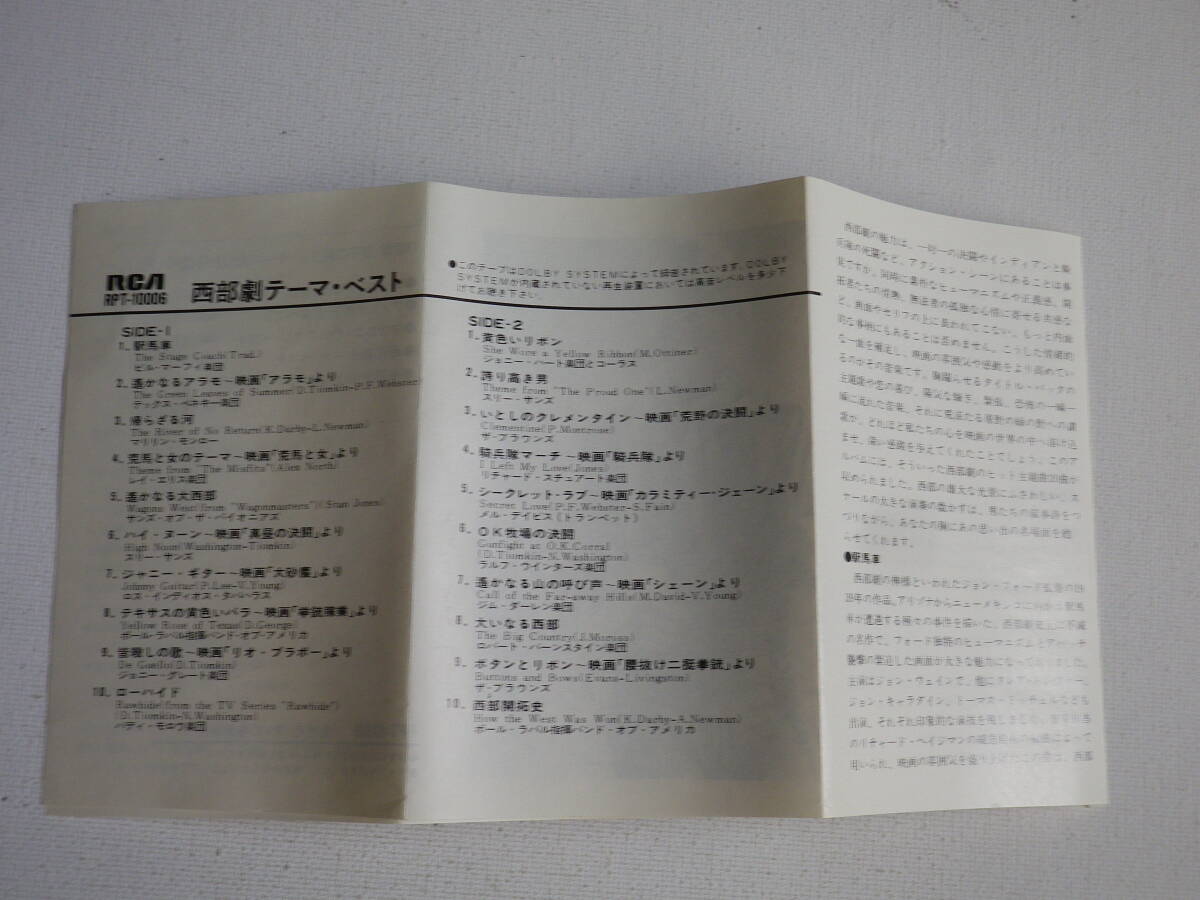 RCA
RPT-10006
西部劇テーマ・ベスト
SIDE-1
1. 駅馬車
The Stage Coach(Trad.)
ビル・マーフィ楽団
2. 遥かなるアラモ～映画「アラモ」より
The Green Leaves of Summer(D.Tiomkin-P.F.Webster)
テックス・ベネキー楽団
3. 帰らざる河
The River of No Return(K.Darby-L.Newman)
マリリン・モンロー
4. 荒馬と女のテーマ～映画「荒馬と女」より
Theme from "The Misfits"(Alex North)
レイ・エリス楽団
5. 遥かなる大西部
Wagons West(from "Wagonmasters")(Stan Jones)
サンズ・オブ・ザ・パイオニアズ
6. ハイ・ヌーン～映画「真昼の決闘」より
High Noon(Washington-Tiomkin)
スリー・サンズ
7. ジャニー・ギター～映画「大砂塵」より
Johnny Guitar(P.Lee-V.Young)
ロス・インディオス・タバハラス
8. テキサスの黄色いバラ～映画「拳銃稼業」より
Yellow Rose of Texas(D.George)
ポール・ラバル指揮バンド・オブ・アメリカ
9. 皆殺しの歌～映画「リオ・ブラボー」より
De Guello(D.Tiomkin)
ジョニー・グレート楽団
10. ローハイド
Rawhide(from the TV Series "Rawhide")
(D.Tiomkin-N.Washington)
バディ・モロウ楽団
●このテープはDOLBY SYSTEMによって録音されています。DOLBY
SYSTEMが内蔵されていない再生装置においては高音レベルを多少下
げてお聴き下さい。
SIDE-2
1. 黄色いリボン
She Wore a Yellow Ribbon(M.Ottiner)
ジョニー・ハート楽団とコーラス
2. 誇り高き男
Theme from "The Proud One"(L.Newman)
スリー・サンズ
3. いとしのクレメンタイン～映画「荒野の決闘」より
Clementine(P.Montrose)
ザ・ブラウンズ
4. 騎兵隊マーチ～映画「騎兵隊」より
I Left My Love(Jones)
リチャード・スチュアート楽団
5. シークレット・ラブ～映画「カラミティー・ジェーン」より
Secret Love(P.F.Webster-S.Fain)
メル・デイビス(トランペット)
6. OK牧場の決闘
Gunfight at O.K.Corral
(D.Tiomkin-N.Washington)
ラルフ・ウインターズ楽団
7. 遥かなる山の呼び声～映画「シェーン」より
Call of the Far-away Hills(M.David-V.Young)
ジム・ダーレン楽団
8. 大いなる西部
The Big Country(J.Moross)
ロバート・バーンスタイン楽団
9. ボタンとリボン～映画「腰抜け二挺拳銃」より
Buttons and Bows(Evans-Livingston)
ザ・ブラウンズ
10. 西部開拓史
How the West Was Won(K.Darby-A.Newman)
ポール・ラバル指揮バンド・オブ・アメリカ
西部劇の魅力は、一対一の決闘やインディアンと騎
兵隊の死闘など、アクション・シーンにあることは事
実ですが、同時に素朴なヒューマニズムや正義感、開
拓者たちの情熱、無法者の孤独な心情に寄せる共感な
ど、画面やセリフの上に表われてこない、もっと内面
的な事柄にもあることは否めません。こうした情緒的
な一面を補足し、映画の雰囲気や感動をより高めてい
るのがその音楽です。胸躍らせるタイトル・バックの
主題歌や恋の喜び、陽気な騒ぎ、緊張、恐怖の一編一
編に流れた音楽、それに見点たる
歌が、どれほど私たちの心を映画の世界の中へ溶け込
ませ、深い感銘を与えてくれたことでしょう。このア
ルバムには、そういった西部劇のヒット主題曲20曲が
収められました。西部の雄大な光景にふさわしい、ス
ケールの大きな演奏の数かずは、
つづりながら、あなたの胸にあの思い出の名場面を甦
らせてくれます。
●駅馬車
西部劇の神様といわれたジョン・フォード監督の19
39年の作品。アリゾナからニューメキシコに向かう駅馬
車が遭遇する種々の事件を描いた、西部劇史上に不滅
の名作で、フォード独特のヒューマニズムとアパッチ
襲撃の緊迫した画面が大きな魅力になっていました。
主演はジョン・ウェインで、他にクレア・トレヴァー、
ジョン・キャラダイン、トーマス・ミッチェルなども
出演、それぞれ印象的な演技を残しました。
のリチャード・ヘイジマンの編
用いられ、映画の雰囲気を盛り上げた 西部